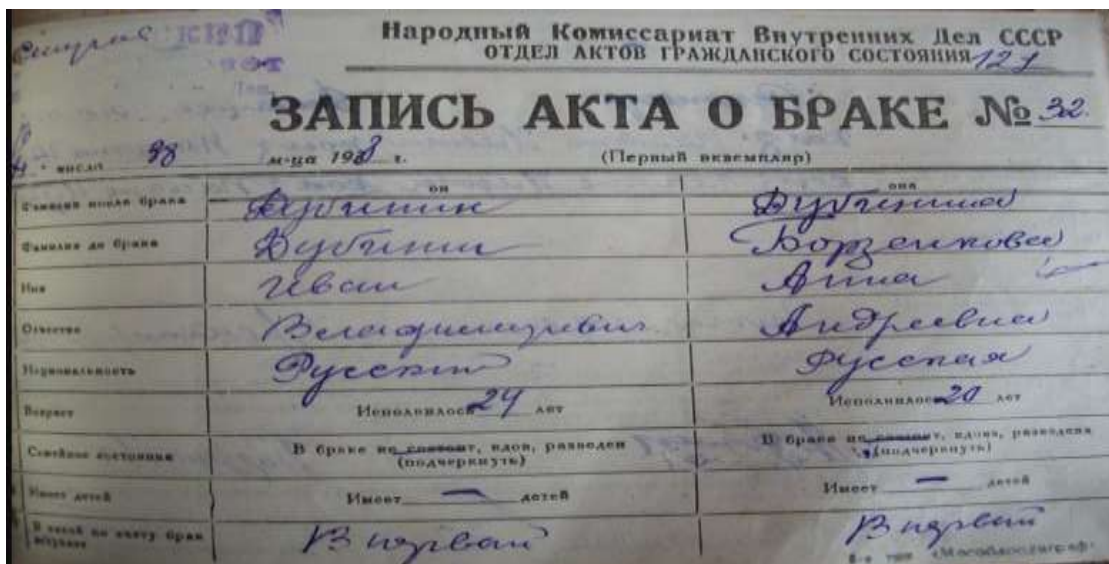 Народный Комиссариат Внутренних Дел СССР
ОТДЕЛ АКТОВ ГРАЖДАНСКОГО СОСТОЯНИЯ
ЗАПИСЬ АКТА О БРАКЕ № 32.
число м-ца 1938 г. (Первый экземпляр)
он она
Фамилия после брака Дубинин Дубинина
Фамилия до брака Дубинин Борзенкова
Имя Иван Анна
Отчество Андреевна
Национальность Русский Русская
Возраст Исполнилось 24 лет Исполнилось 20 лет
Семейное состояние В браке не состоит, вдов, разведен (подчеркнуть) В браке не состоит, вдова, разведена (подчеркнуть)
Имеет детей Имеет — детей Имеет — детей
В какой по счету брак вступает В первый В первый